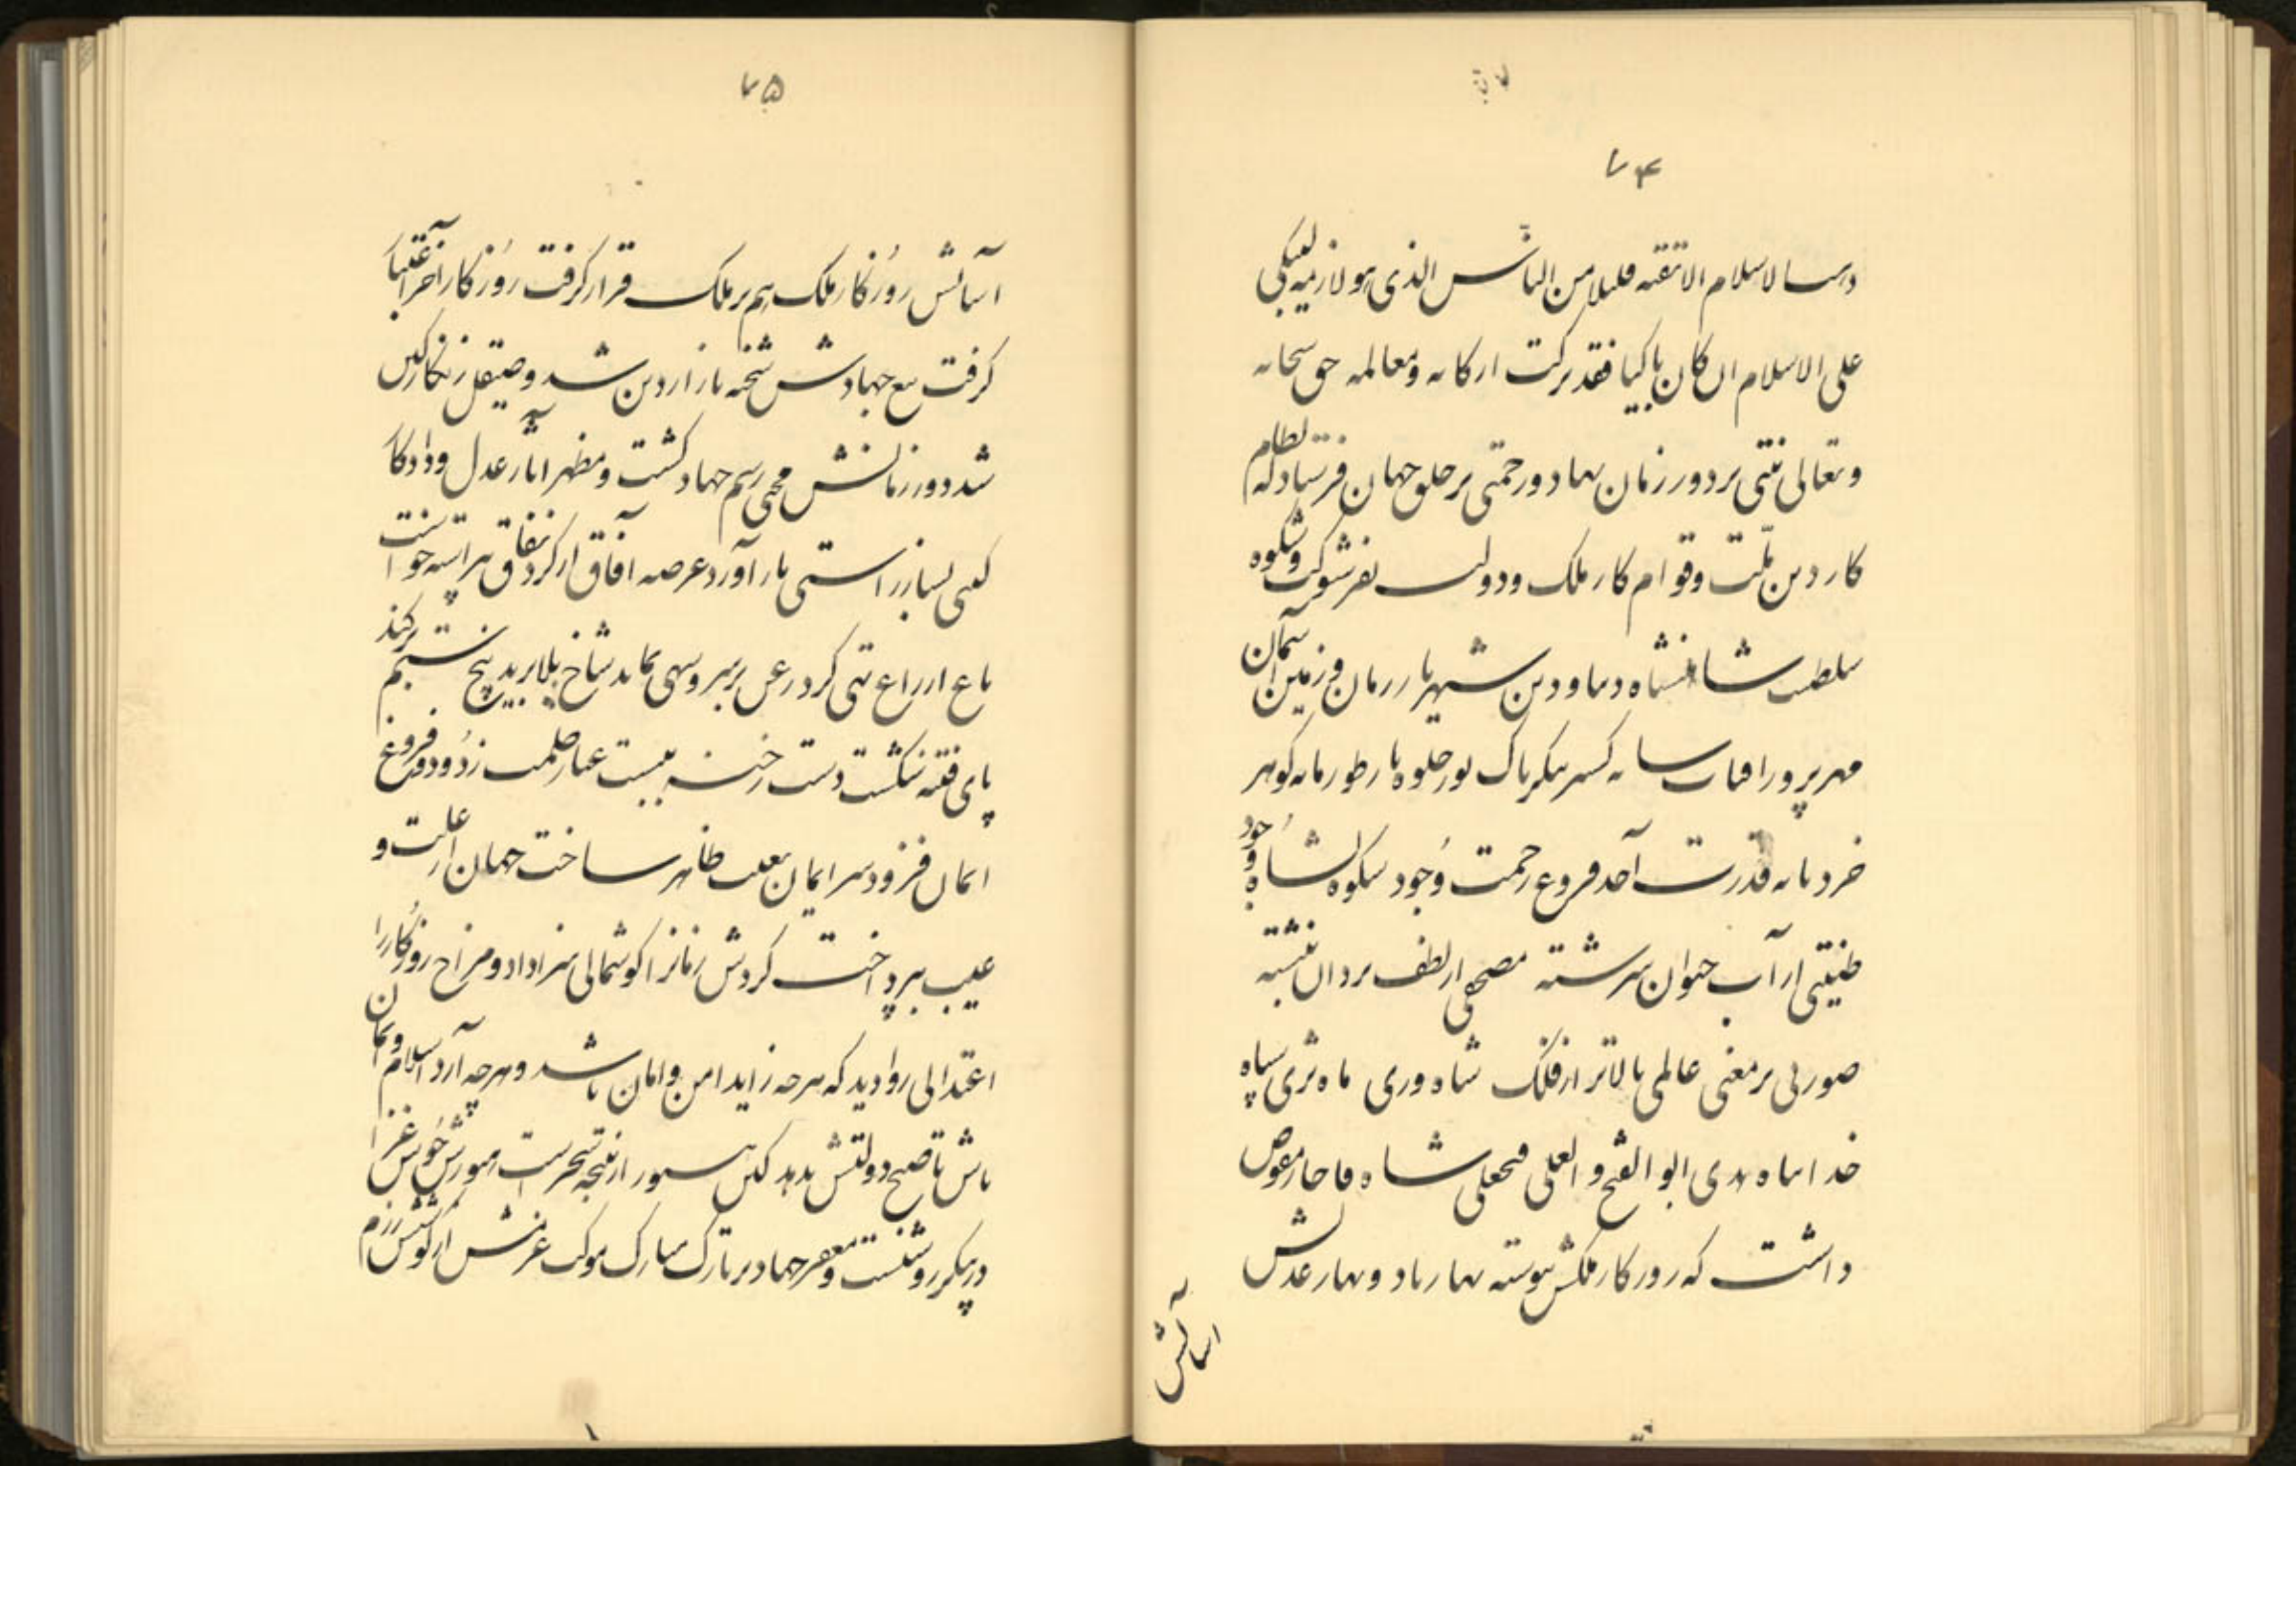 ۷۴
علی الاسلام ان کان باکیا فقد ترکت ارکانه ومعالمه حق سبحانه
وتعالی منتی بر دور زمان نهاد ورحمتی بر خلق جهان فرستاد که نظام
کار دین ملت وقوام کار ملک ودولت بفر شوکت وشکوه
سلطنت شاهنشاه دنیا ودین شهریار زمان وزمین آسمان
مهرپرور افتاب سایه کستر پیکر پاک نور جلوه بار طور مایه کوهر
خرد پایه قدرت احد فروغ رحمت وجود
طینتی از آب حیوان سرشته مصحفی از لطف یزدان نبشته
صورتی بر معنی عالمی بالاتر از فلک شاه وری ماه ثری سپاه
ابو الفتح و العلی فتحعلی شاه قاجار مفوض
داشت که روز کار ملکش پیوسته بهار باد وبهار عدلش
آسایش
۷۵
آسایش روزکار ملک هم بر ملک قرار کرفت روزکار آخر اعتبار
کرفت تیغ جهادش شحنه بازار دین شد وصیقل زنکار کین
شد دور زمانش محیی رسم جهاد کشت ومظهر آثار عدل وداد کار
کیتی بساز راستی باز آورد عرصه آفاق از کرد نفاق بپیراست
باغ از زاغ تهی کرد شاخ بلا برید بیخ ستم برکند
پای فتنه شکست دست رخنه ببست غبار ظلمت زدود وفروغ
ایمان فزود سر ایمان بغیب ظاهر ساخت جهان از علت و
عیب بپرداخت کردش زمانرا کوشمالی سزا داد ومزاج روزکار را
اعتدالی روا دید که هر چه زاید امن وامان باشد وهر چه آرد اسلام وایمان
باش تا صبح دولتش بدمد کاین هنوز از نتیجه سحرست
در پیکر روشنست ومغفر جهاد بر تارک مبارک موکب عزمش از کوشش رزم